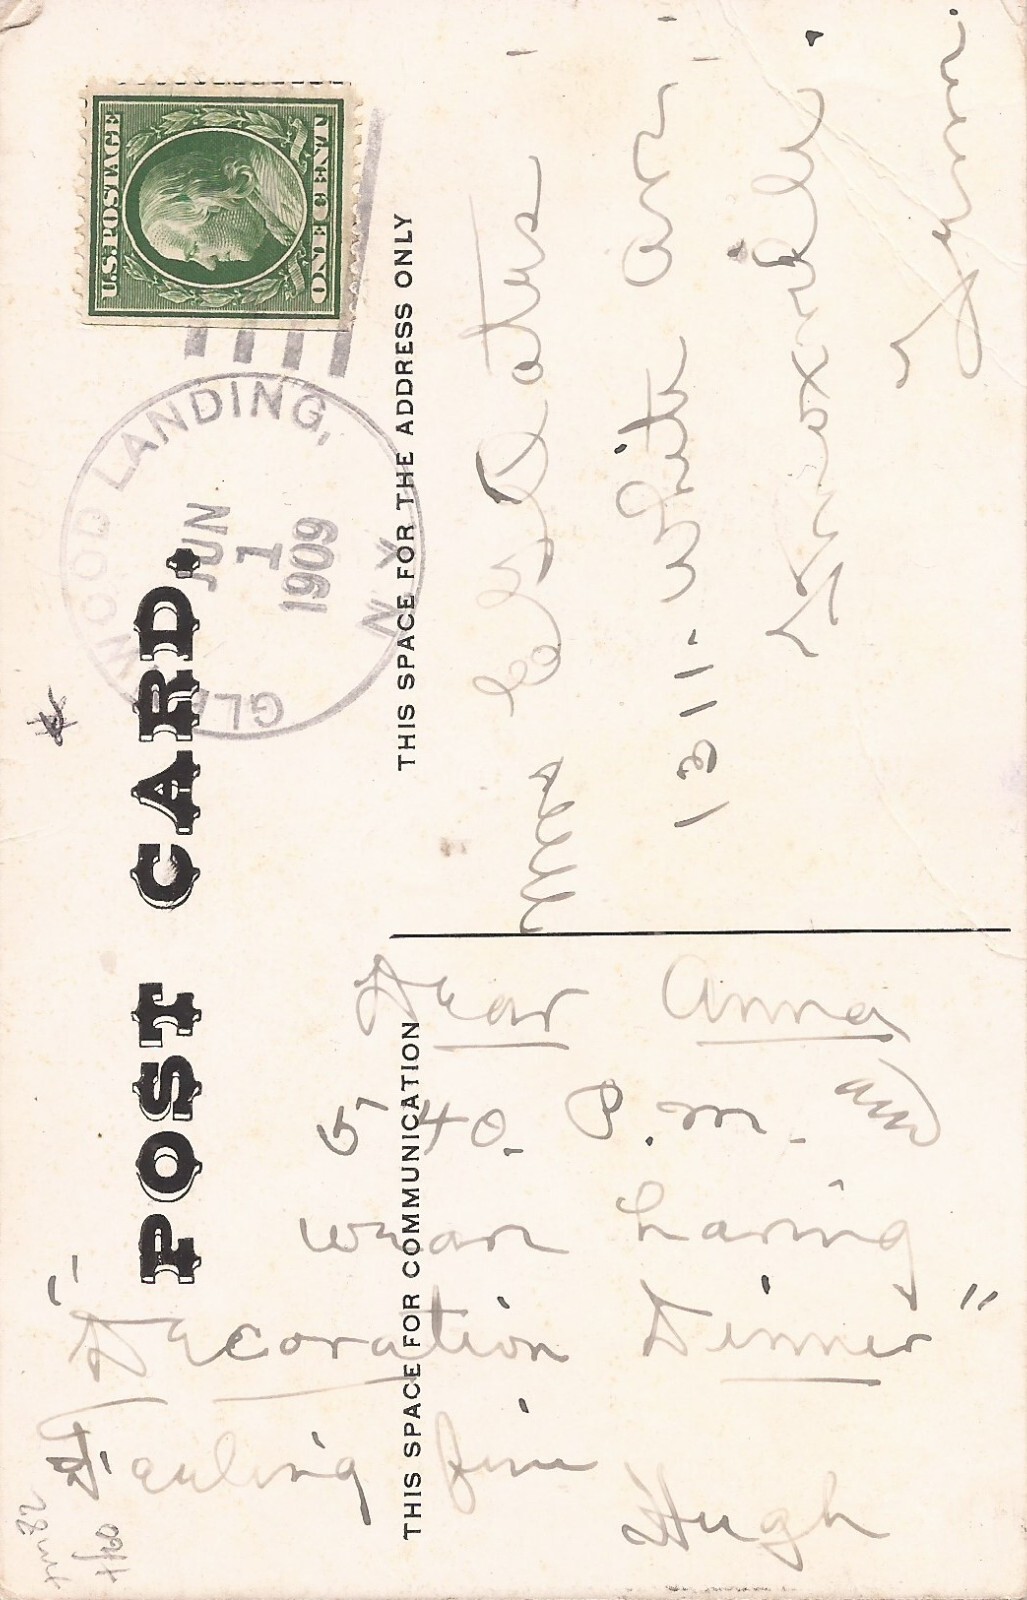 POST CARD.
THIS SPACE FOR COMMUNICATION
THIS SPACE FOR THE ADDRESS ONLY
U.S. POSTAGE
ONE CENT
GLENWOOD LANDING,
N.Y.
JUN
1
1909
Dear Anna
5 40. P.M. and
we are having
"Decoration Dinner"
Feeling fine
Hugh
Mrs
1311 - White Ave
Knoxville.
Tenn.